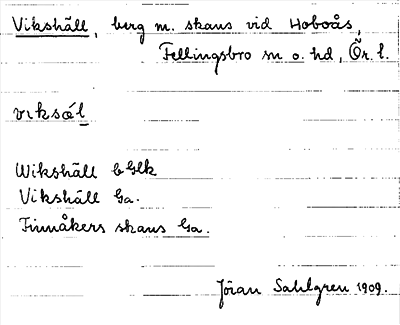 Vikshäll, berg m. skans vid Hoboås,
Fellingsbro sn o. hd, Ör. l.
viksǽl
Wikshäll b Glk
Vikshäll Ga.
Finnåkers skans Ga.
Jöran Sahlgren 1909.